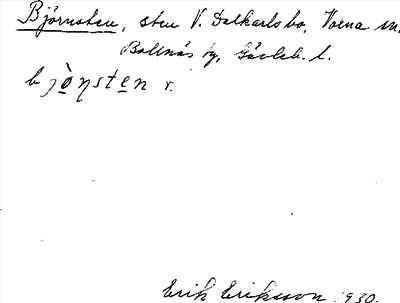 Björnsten, sten V. Dalkarlsbo, Voxna sn.
Bollnäs fg, Gävleb. l.
bjö̀ṇsten r.
Erik Eriksson 1930.